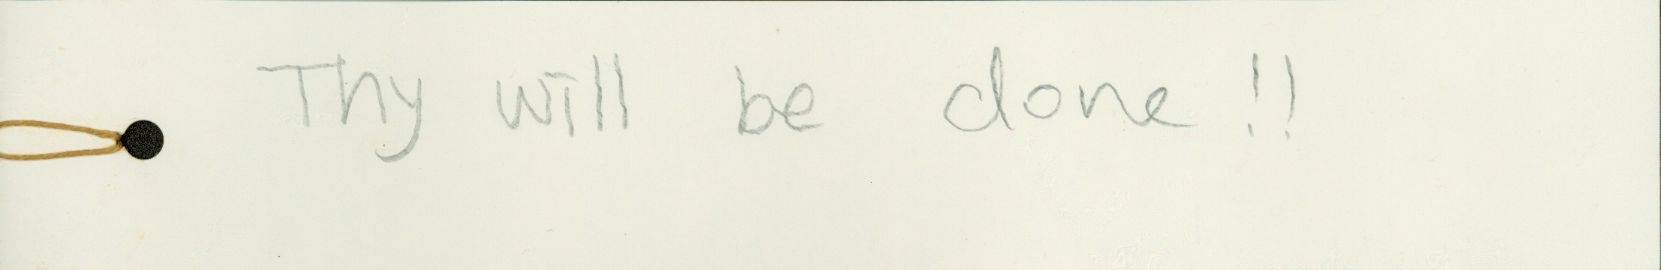 Thy will be done!!